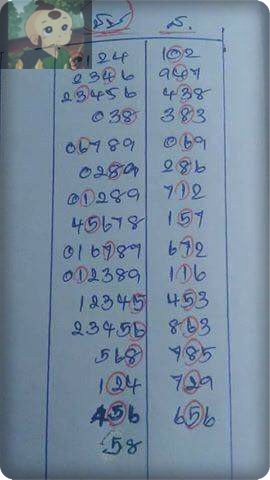 ส.
0124 102
2346 947
23456 438
038 383
06789 069
0289 286
01289 712
45678 157
016789 672
012389 116
12345 453
23456 863
568 785
124 729
456 656
58